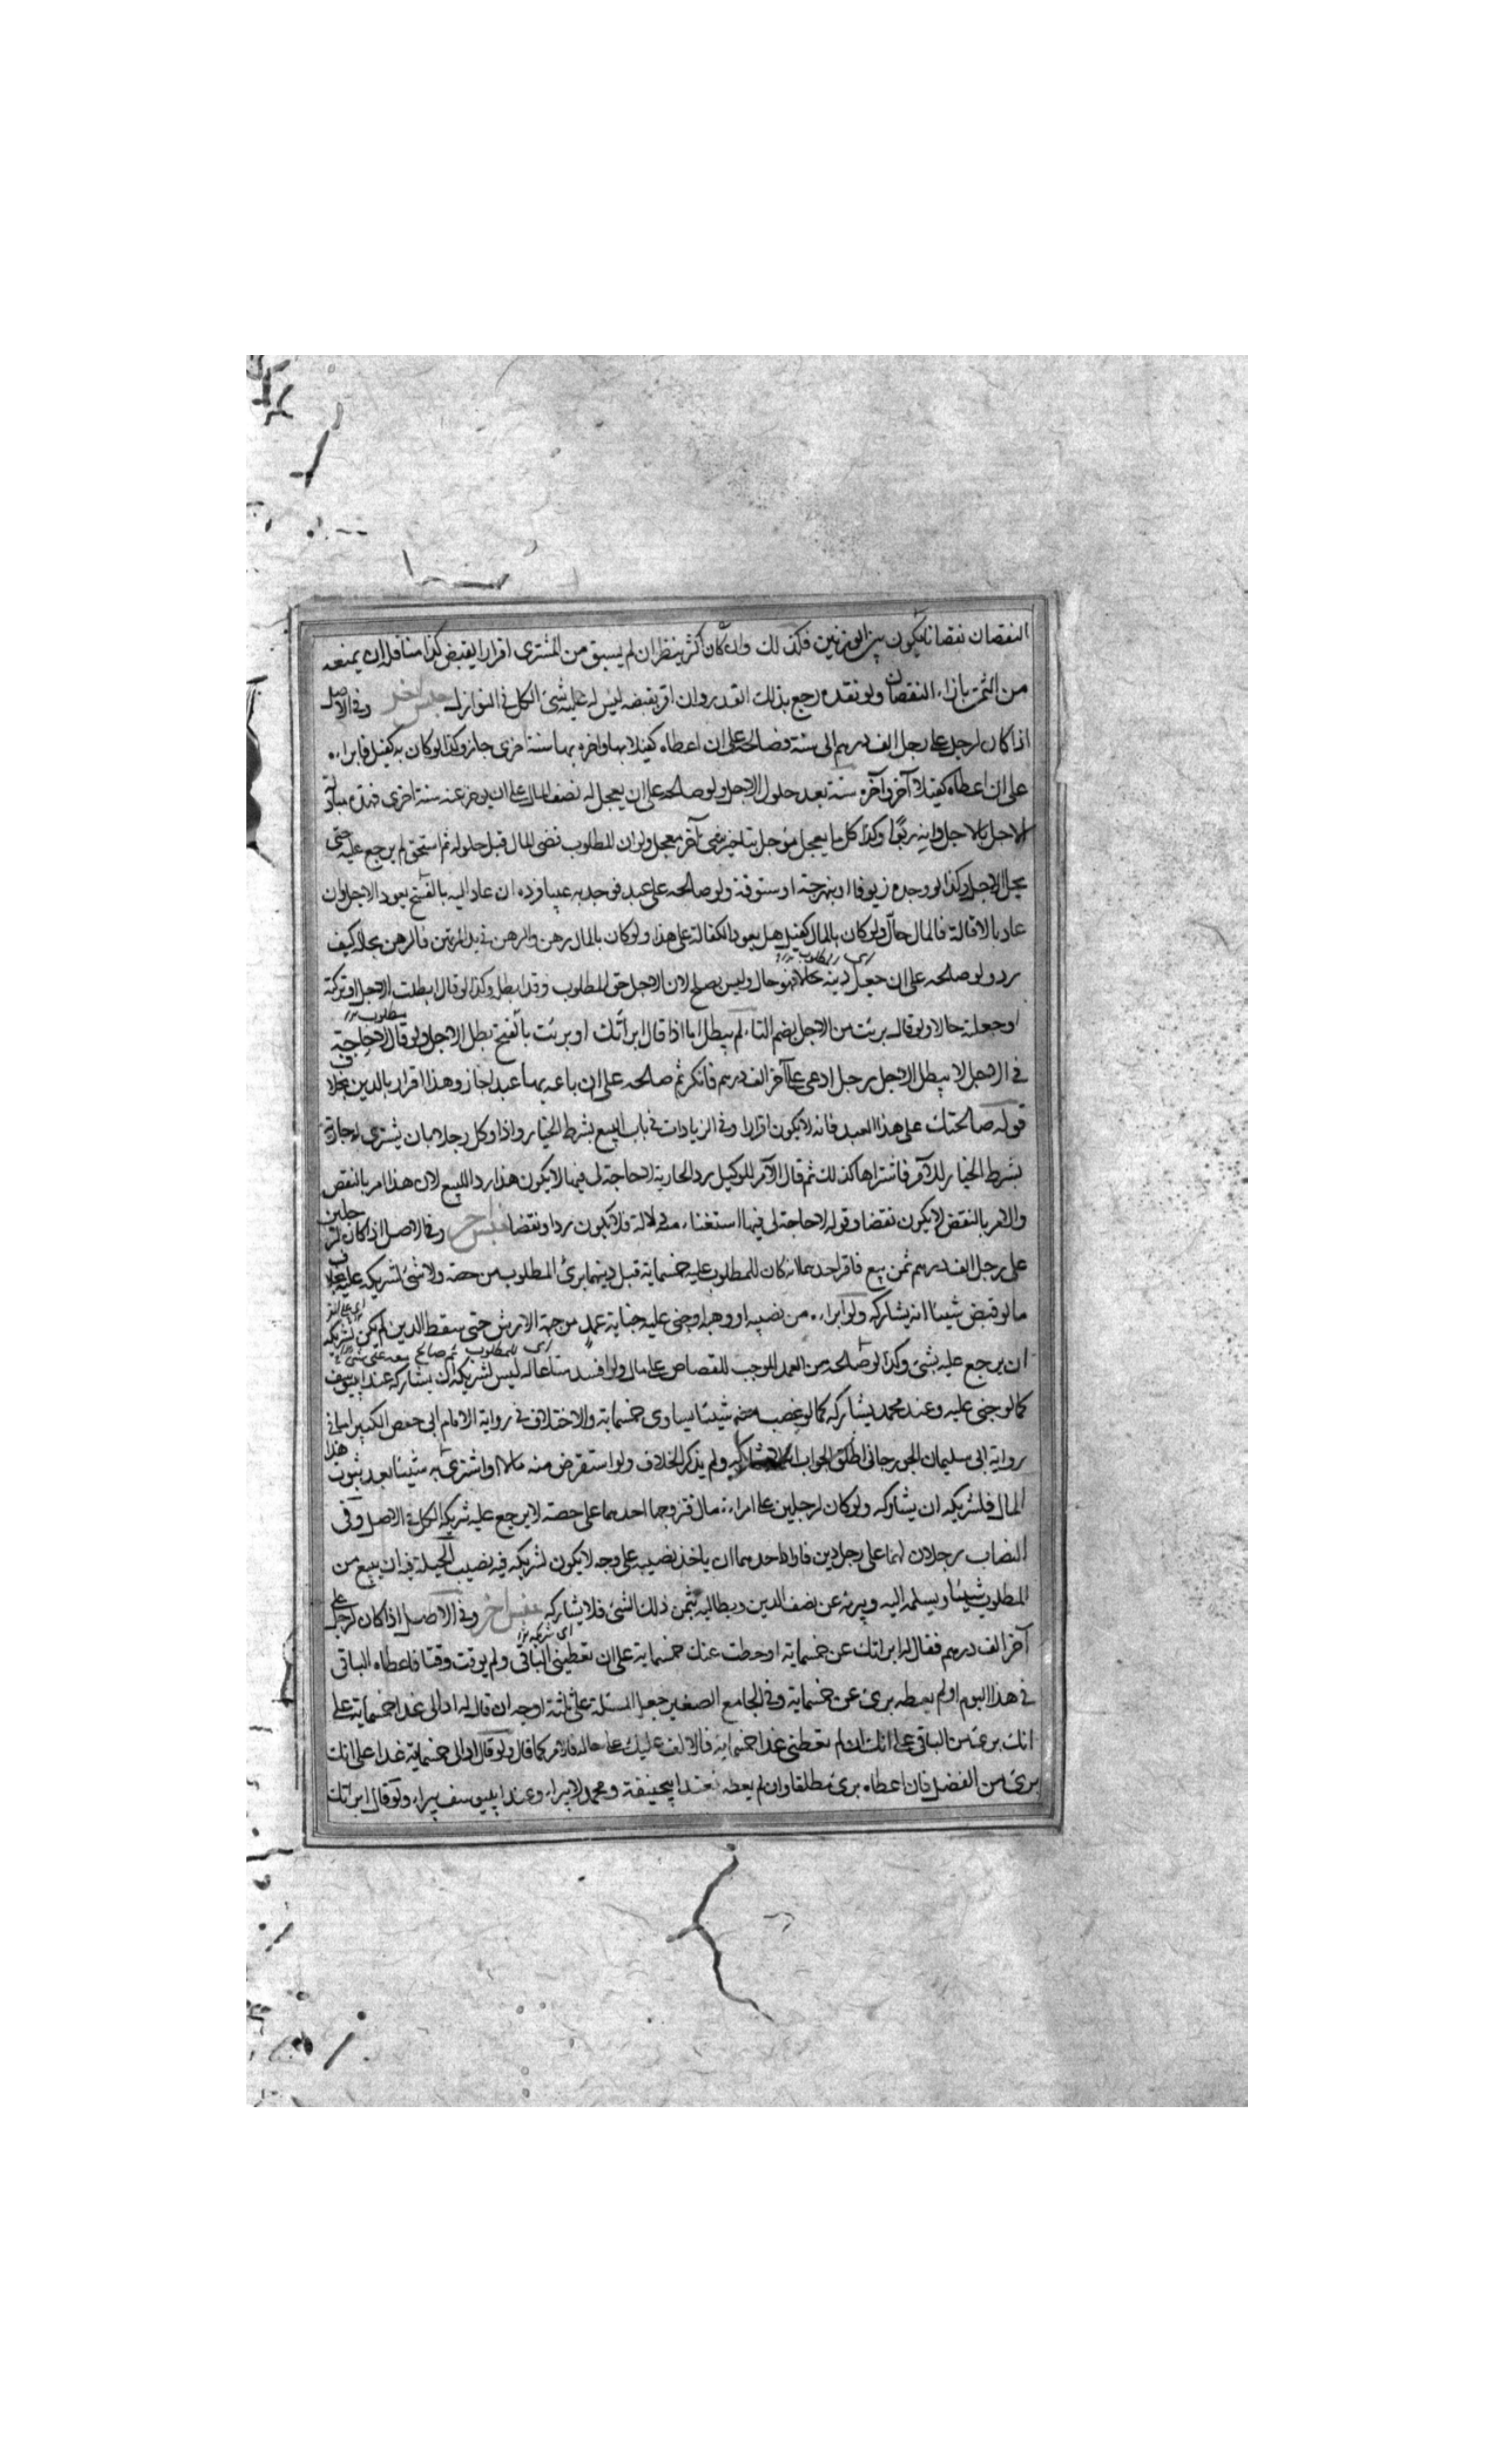 النقصان نقصانا يكون بين الوزنين فكذلك وان كان اكثر ينظر ان لم يسبق من المشترى اقرار بقبض كذا منا فله ان يمنعه
من الثمن بازاء النقصان ولو نقده رجع بذلك القدر وان اقر بقبضه ليس له عليه شئ الكل فى النوازل جنس آخر وفى الاصل
اذا كان لرجل على رجل الف درهم الى سنة فصالحه على ان اعطاه كفيلا بها واخره بها سنة اخرى جاز وكذا لو كان به كفيل فابراءه
على ان اعطاه كفيلا آخر وآخره سنة بعد حلول الاجل ولو صالحه على ان يعجل له نصف المال على ان يؤخر عنه سنة اخرى فهذه مبادلة
الاجل بالاجل وانه ربوا وكذا كل ما يعجل مؤجل بتاخير شئ آخر معجل ولو ان المطلوب قضى المال قبل حلوله ثم استحق لم يرجع عليه حتى
يحل الاجل وكذا لو وجده زيوفا او بنهرجة او ستوقة ولو صالحه على عبد فوجد به عيبا ورده ان عاد اليه بالفسخ يعود الاجل وان
عاد بالاقالة فالمال حال ولو كان بالمال كفيل هل يعود الكفالة على هذا ولو كان بالمال رهن والرهن فى يد المرتهن فالرهن بحاله كيف
رد ولو صالحه على ان جعل دينه حالا فهو حال وليس بصلح لان الاجل حق المطلوب وقد ابطل وكذا لو قال ابطلت الاجل او تركته
او جعلته حالا ولو قال برئت من الاجل بضم التاء لم يبطل اما اذا قال ابرأتك او برئت بالفتح بطل الاجل ولو قال لا حاجة
فى الاجل لا يبطل الاجل رجل ادعى على آخر الف درهم فانكر ثم صالحه على ان باعه بها عبدا جاز وهذا اقرار بالدين بخلاف
قوله صالحتك على هذا العبد فانه لا يكون اقرارا وفى الزيادات فى باب البيع بشرط الخيار واذا وكل رجلا بان يشترى له جارية
بشرط الخيار للآمر فاشتراها كذلك ثم قال الآمر للوكيل رد الجارية لا حاجة لى فيها لا يكون هذا رد البيع لان هذا امر بالنقض
والامر بالنقض لا يكون نقضا وقوله لا حاجة لى فيها استغناء لا يكون ردا ونقضا جنس آخر وفى الاصل اذا كان لرجلين
على رجل الف درهم ثمن بيع فاقر احدهما انه كان للمطلوب عليه خمسماية قبل دينهما برئ المطلوب من حصته ولا شئ لشريكه عليه بخلاف
ما لو قبض شيئا انه يشاركه ولو ابراءه من نصيبه او وهبه او جنى عليه جناية عمد من جهة الارش حتى سقط الدين لم يكن لشريكه
ان يرجع عليه بشئ وكذا لو صالحه من العمد الموجب للقصاص على مال ولو افسد متاعا له ليس لشريكه ان يشاركه عند ابى يوسف
كما لو جنى عليه وعند محمد يشاركه كما لو غصب منه شيئا يساوى خمسماية والاختلاف فى رواية الامام ابى حفص الكبير اما فى
رواية ابى سليمان الجورجانى اطلق الجواب ولم يذكر الخلاف ولو استقرض منه مالا او اشترى به شيئا بعد ثبوت هذا
المال فلشريكه ان يشاركه ولو كان لرجلين على امراءة مال فتزوجها احدهما على حصته لا يرجع عليه شريكه الكل فى الاصل وفى
النصاب رجلان لهما على رجل دين فاراد احدهما ان ياخذ نصيبه على وجه لا يكون لشريكه فيه نصيب الحيلة فيه ان يبيع من
المطلوب شيئا ويسلمه اليه ويبرئه عن نصف الدين ويطالبه بثمن ذلك الشئ فلا يشاركه جنس آخر وفى الاصل اذا كان لرجل على
آخر الف درهم فقال له ابرأتك عن خمسماية او حططت عنك خمسماية على ان تعطينى الباقى ولم يوقت وقتا فاعطاه الباقى
فى هذا اليوم او لم يعطه برئ عن خمسماية وفى الجامع الصغير جعل المسئلة على ثلثة اوجه ان قال له ادالى غدا خمسماية على
انك برئ من الباقى على انك ان لم تعطنى غدا خمسماية فالالف عليك على حاله فالامر كما قال ولو قال ادالى خمسماية غدا على انك
برئ من الفضل فان اعطاه برئ مطلقا وان لم يعطه فعند ابيحنيفة ومحمد لا يبراء وعند ابييوسف يبراء ولو قال ابرأتك